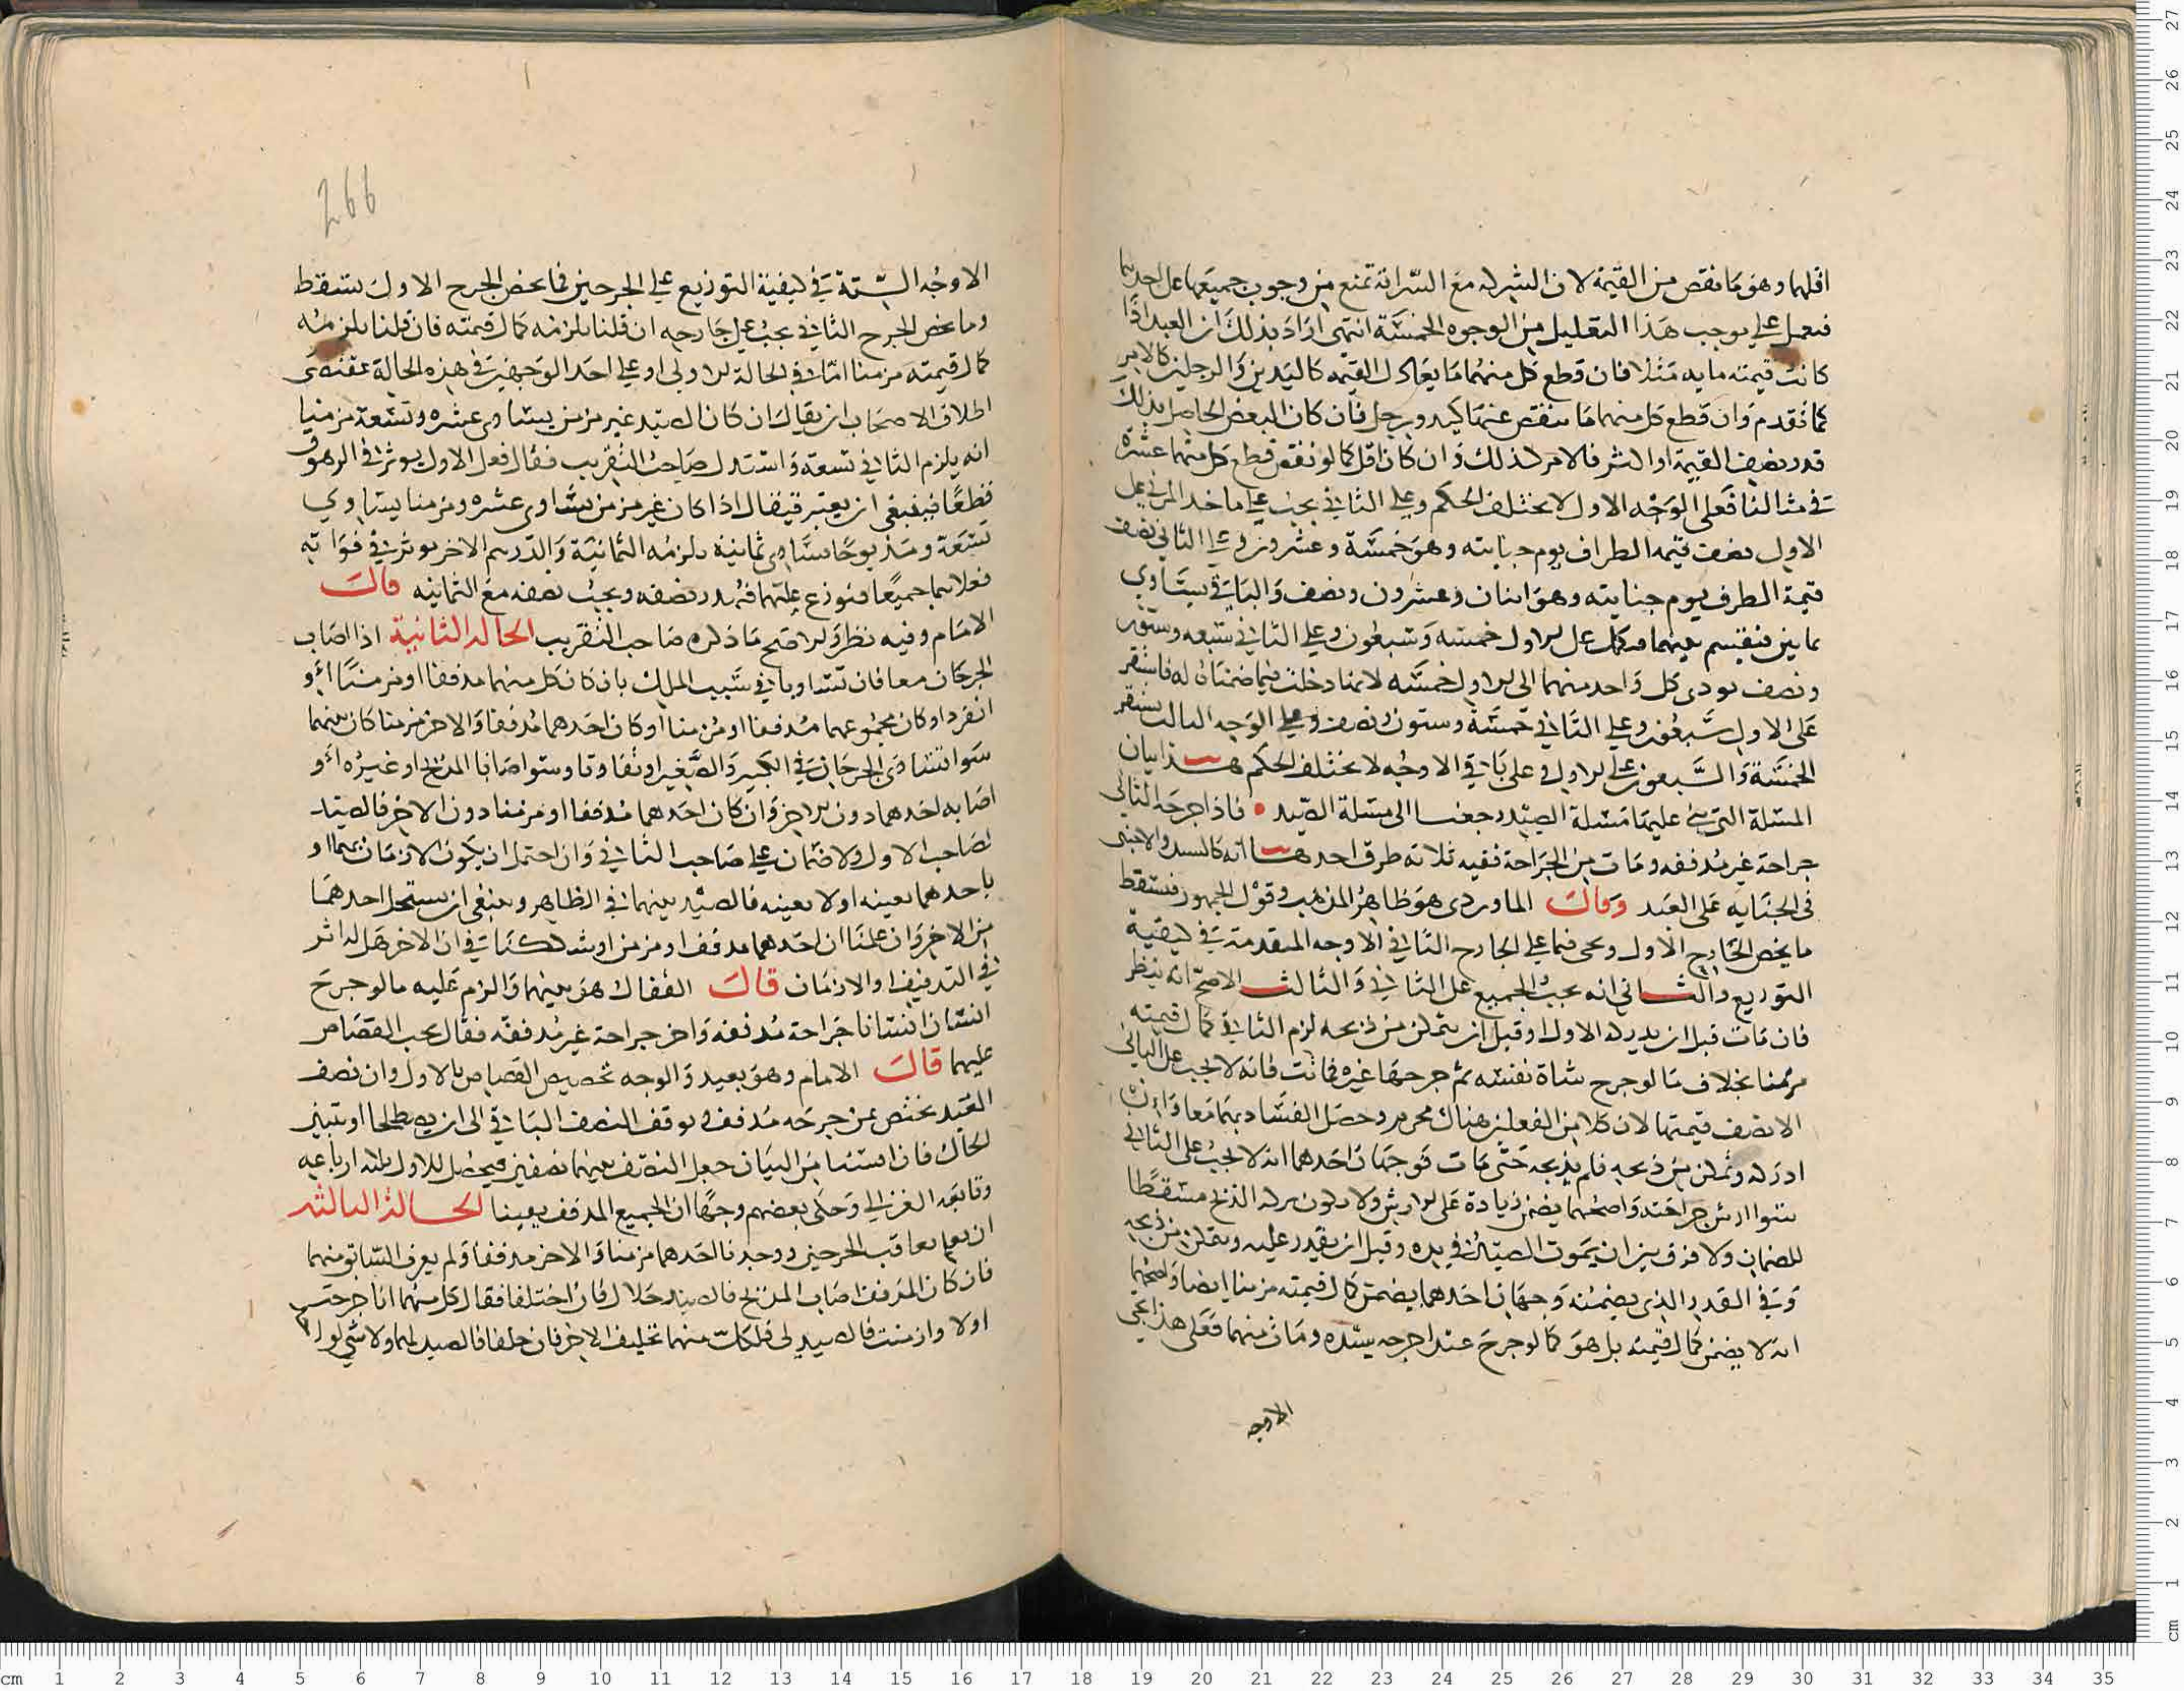 اقلهما وهو ما نقص من القيمة لان الشركه مع السراية تمنع من وجوب جميعها على احدهما
فنعمل على موجب هذا التعليل من الوجوه الخمسة انتهى اراد بذلك ان العبد اذا
كانت قيمته مايه مثلا فان قطع كل منهما ما يعادل القيمه كاليدين والرجلين كالامر
كما تقدم وان قطع كل منهما ما ينقص عنها كيد ورجل فان كان البعض الحاصل بذلك
قدر نصف القيمة او اكثر فالامر كذلك وان كان اقل كما لو نقص قطع كل منهما عشرة
في مثالنا فعلى الوجه الاول لا يختلف الحكم وعلى الثاني يجب على ماخذ المزني على
الاول نصف قيمه الطراف يوم جنايته وهو خمسة وعشرون وعلى الثاني نصف
قيمة الطرف يوم جنايته وهو اثنان وعشرون ونصف والباقي يساوي
ثمانين فتقسم بينهما فيكمل على الاول خمسه وسبعون وعلى الثاني سبعه وستون
ونصف يودى كل واحد منهما الى الاول خمسه لانها دخلت فيما ضمنان له فاستقر
على الاول سبعون وعلى الثاني خمسة وستون ونصف وعلى الوجه الثالث يستقر
الخمسة والسبعون على الاول وعلى باقي الاوجه لا يختلف الحكم هذا بيان
المسلة التي بنى عليها مسلة الصيد رجعنا الى مسلة الصيد • فاذا جرحه الثاني
جراحة غير مدففه ومات من الجراحة ففيه ثلاثه طرق احدها انه كالسيد والاجنبى
في الجنايه على العبد وقال الماوردى هو ظاهر المذهب وقول الجمهور فتسقط
ما يخص الجارح الاول ويجى فيما على الجارح الثاني الاوجه المتقدمة في كيفية
التوزيع والثاني انه يجب الجميع على الثاني والثالث الاصح انه ينظر
فان مات قبل ان يدركه الاول او قبل ان يتمكن من ذبحه لزم الثاني كمال قيمته
مزمنا بخلاف ما لو جرح شاة نفسه ثم جرحها غيره فماتت فانه لا يجب على الثاني
الا نصف قيمتها لان كلا من الفعلين هناك محرم وحصل الفساد بهما معا وان
ادركه وتمكن من ذبحه فلم يذبحه حتى مات فوجهان احدهما انه لا يجب على الثاني
سوا ارش جراحته واصحهما يضمن زيادة على الارش ولا يكون تركه الذبح مسقطا
للضمان ولا فرق بين ان يموت الصيد في يده وقبل ان يقدر عليه ويتمكن من ذبحه
وفي القدر الذى يضمنه وجهان احدهما يضمن كمال قيمته مزمنا ايضا واصحهما
انه لا يضمن كمال قيمته بل هو كما لو جرح عبدا جرحه سيده ومات منهما فعلى هذا يجى
الاوجه
266
الاوجه الستة في كيفية التوزيع على الجرحين فما يخص الجرح الاول يسقط
وما يخص الجرح الثاني يجب على جارحه ان قلنا يلزمه كمال قيمته فان قلنا يلزمه
كمال قيمته مزمنا اما في الحالة الاولى او على احد الوجهين في هذه الحالة مقتضى
اطلاق الاصحاب ان يقال ان كان الصيد غير مزمن يساوى عشره وتسعة مزمنا
انه يلزم الثاني تسعة واستدل صاحب التقريب فقال فعل الاول يوثر في الزهوق
قطعا فينبغي ان يعتبر فيقال اذا كان غير مزمن يساوى عشره ومزمنا يساوي
تسعة ومذبوحا يساوى ثمانية يلزمه الثمانية والدرهم الاخر يوثر في فواته
فعلاهما جميعا فتوزع عليهما فيهدر نصفه ويجب نصفه مع الثمانيه قال
الامام وفيه نظر والاصح ما ذكره صاحب التقريب الحاله الثانية اذا اصاب
الجرحان معا فان تساويا في سبب الملك بان كان كل منهما مدففا او مزمنا لو
انفرد او كان مجموعهما مدففا او مزمنا او كان احدهما مدففا والاخر مزمنا كان بينهما
سوا تساوى الجرحان في الكبر والصغر او تفاوتا وسوا اصابا المذبح او غيره او
اصابه احدهما دون الاخر وان كان احدهما مدففا او مزمنا دون الاخر فالصيد
لصاحب الاول ولا ضمان على صاحب الثاني وان احتمل ان يكون الازمان بهما او
باحدهما بعينه او لا بعينه فالصيد بينهما في الظاهر وينبغي ان يستحل احدهما
من الاخر وان علمنا ان احدهما مدفف او مزمن وشككنا في ان الاخر هل له اثر
في التدفيف او الازمان قال القفال هو بينهما والزم عليه ما لو جرح
انسان انسانا جراحة مدففه واخر جراحة غير مدففه فقال يجب القصاص
عليهما قال الامام وهو بعيد والوجه تخصيص القصاص بالاول وان نصف
العبد يختص بمن جرحه مدفف ويوقف النصف الباقي الى ان يصطلحا او يتبين
الحال فان ايسنا من البيان جعل النصف بينهما نصفين فيحصل للاول ثلاثه ارباعه
وتابعه الغزالي وحكى بعضهم وجها ان الجميع للمدفف يعينا الحالة الثالثه
ان يعلم تعاقب الجرحين ووجدنا احدهما مزمنا والاخر مدففا ولم يعرف السابق منهما
فان كان المدفف اصاب المذبح فالصيد حلال فان اختلفا فقال كل منهما انا جرحته
اولا وازمنت فالصيد لي فلكل منهما تحليف الاخر فان حلفا فالصيد لهما ولا شي لواحد